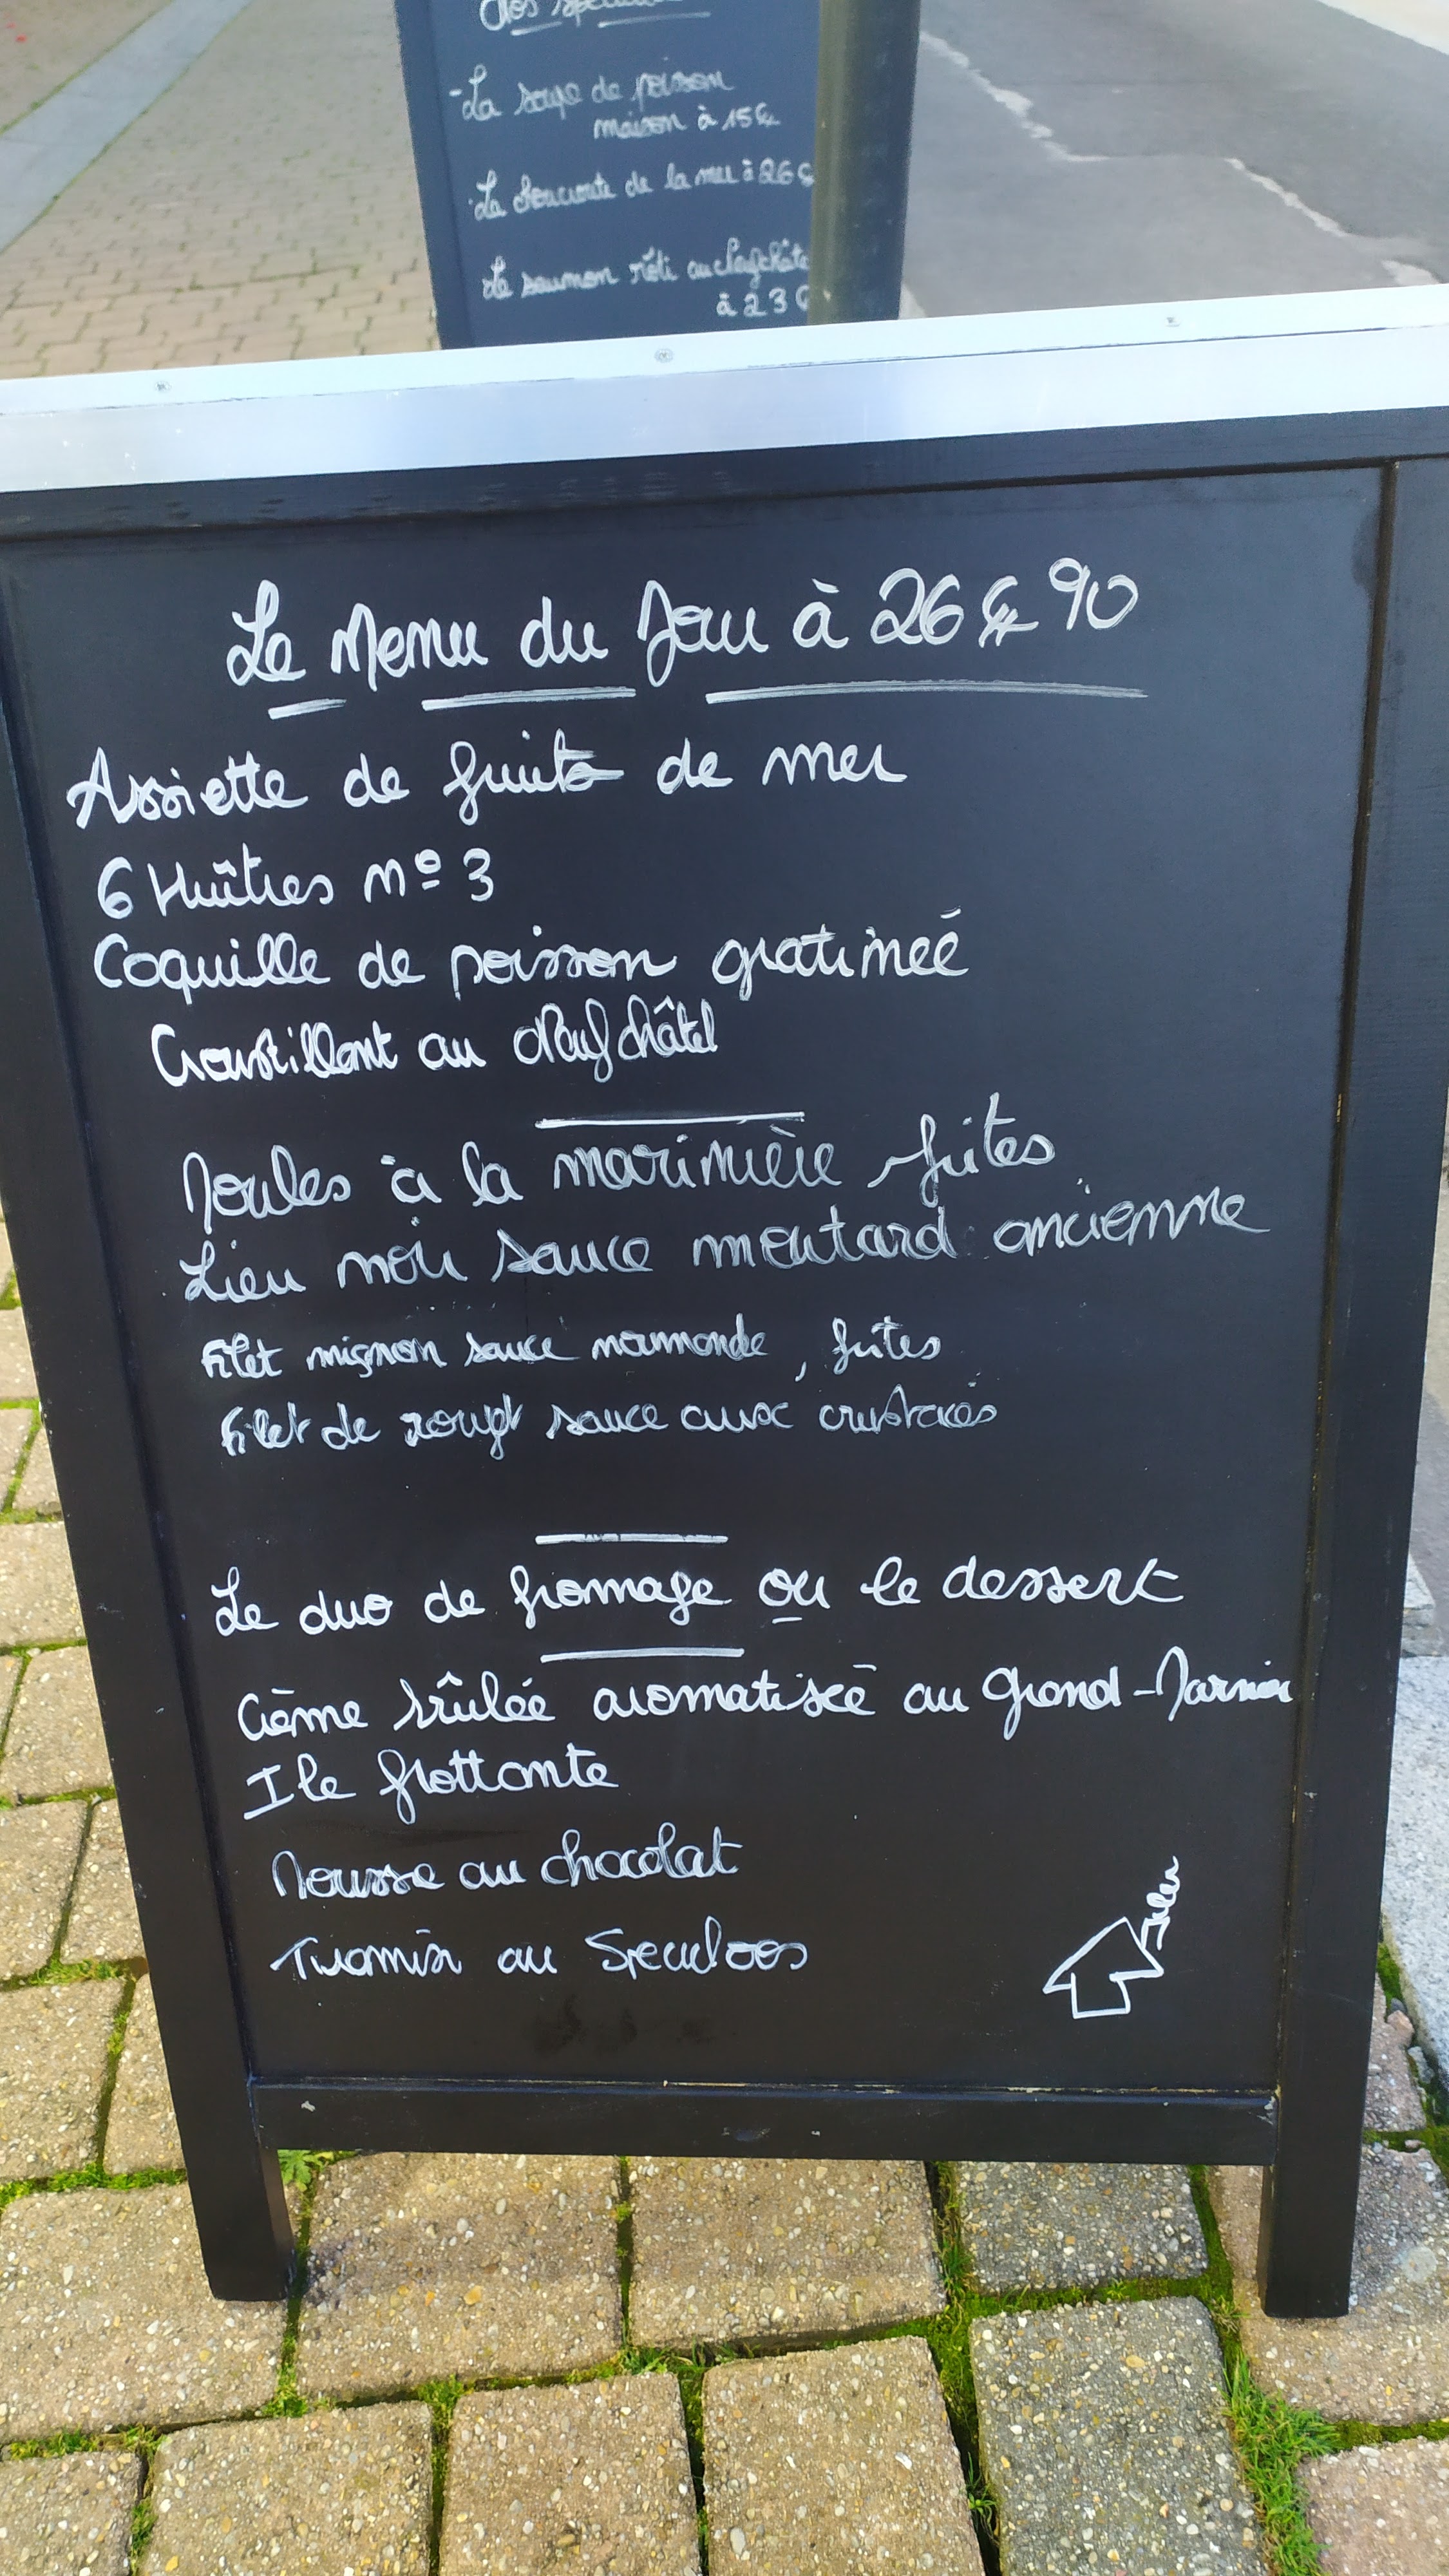 Nos spécialités
-La soupe de poisson
maison à 15€
La choucroute de la mer à 26€
Le saumon rôti au Neufchâtel
à 23€
Le Menu du Jour à 26€90
Assiette de fruits de mer
6 Huîtres n° 3
Coquille de poisson gratinée
Croustillant au Neufchâtel
Moules à la marinière, frites
Lieu noir sauce moutard ancienne
Filet mignon sauce normande, frites
Filet de rouget sauce aux crustacés
Le duo de fromage ou le dessert
Crème brûlée aromatisée au Grand-Marnier
Ile flottante
Mousse au chocolat
Tiramisu au Speculoos